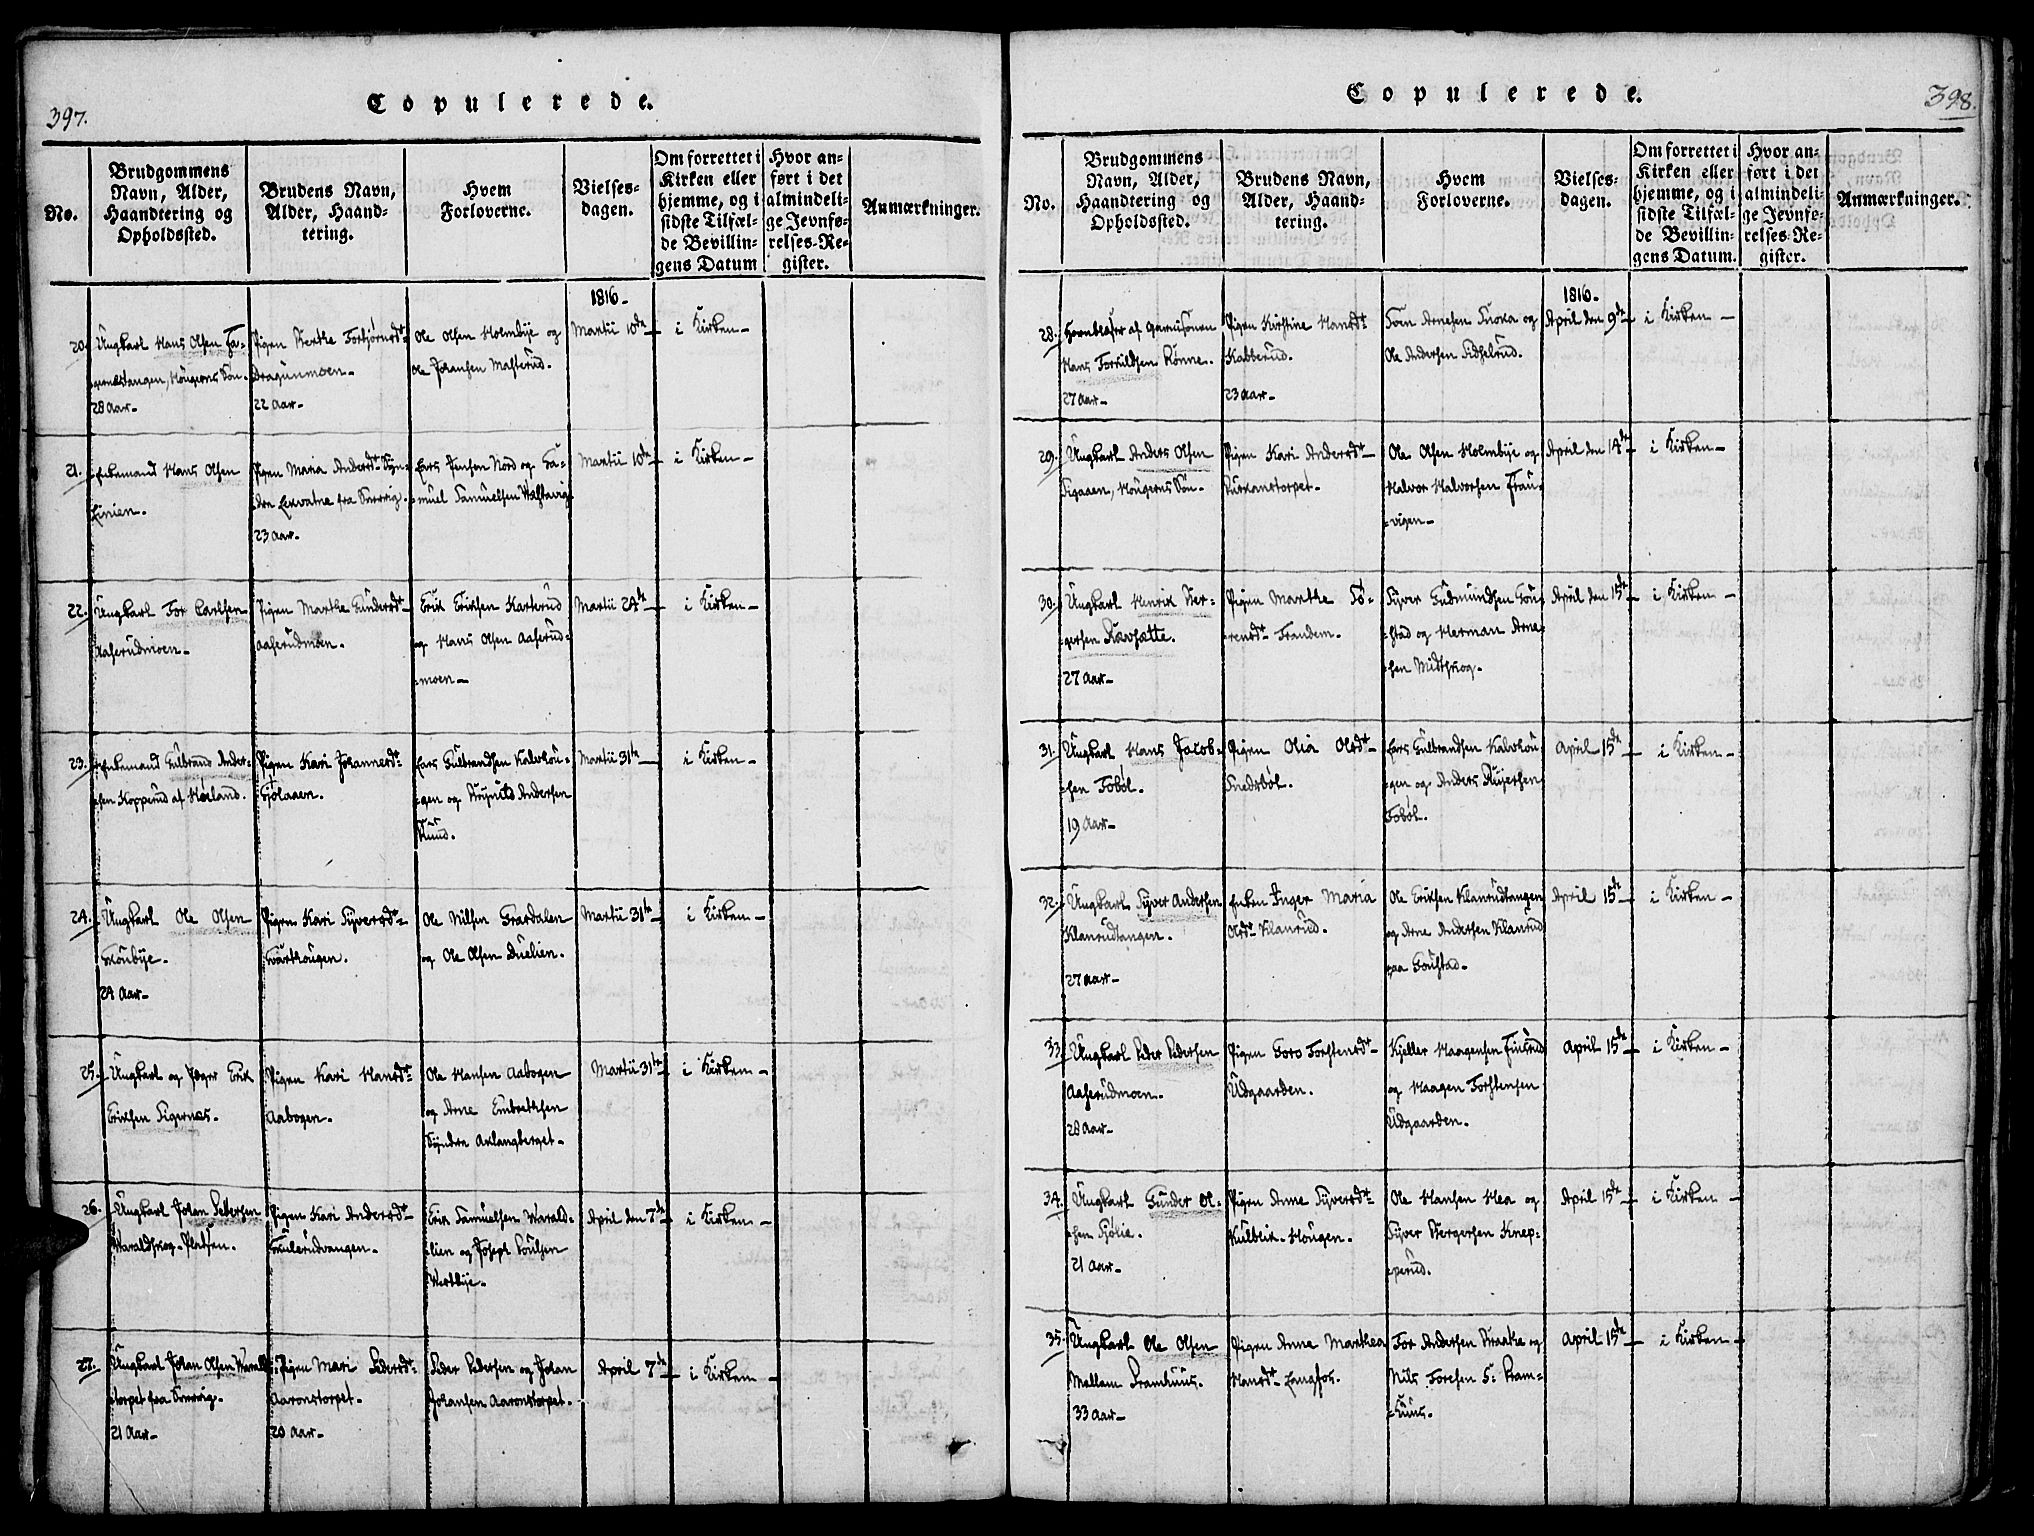 397.
Copulerede.
No.
Brudgommens
Navn, Alder,
Haandtering og
Opholdssted.
Brudens Navn,
Alder, Haand-
tering.
Hvem
Forloverne.
Vielses-
dagen.
Om forrettet i
Kirken eller
hjemme, og i
sidste Tilfæl-
de Bevillin-
gens Datum
Hvor an-
ført i det
almindeli-
ge Jevnfø-
relses-Re-
gister.
Anmærkninger.
1816.
20.
Ungkarl Hans Olsen
28 Aar-
Pigen Berthe
Dragunmoen-
22 Aar-
Ole Olsen Holmbye og
Ole Johansen Masterud.
Martii 10de
i Kirken-
21.
Enkemand Hans Olsen
Linien.
Pigen Maria Andersdt
23 Aar.
Lars Jensen Nord og Sa-
muel Samuelsen
Martii 10de
i Kirken-
22.
Ungkarl Tor Carlsen
Aaserudmoen-
Pigen Marthe Gundersdt-
Aaserudmoen.
Erik Eriksen Karterud
og Hans Olsen Aaserud-
=moen-
Martii 24de
i Kirken-
23.
Enkemand Gulbrand Ander-
=sen Kopperud af
Pigen Kari Johannesdt
Lars Gulbrandsen Kalvhou-
=gen og Brynild Andersen
Ruud.
Martii 31te
i Kirken-
24.
Ungkarl Ole Olsen
Skoubye.
24 Aar-
Pigen Kari Syversdt-
Ole Nilsen Grasdalen
og Ole Olsen Duelien.
Martii 31te
i Kirken-
25.
Ungkarl og Jæger Erik
Eriksen Sigernæs.
Pigen Kari Hansdt-
Aabogen.
Ole Hansen Aabogen
og Arne Embrethsen
Syndre Axlangberget-
Martii 31te
i Kirken-
26.
Ungkarl Johan Pedersen
Waraldskog-Pladsen.
Pigen Kari Andersdt-
Erik Samuelsen Warald-
=lien og Joseph Poulsen
April den 7de
i Kirken-
27.
Ungkarl Johan Olsen
torpet fra
21 Aar-
Pigen Mari Pedersdt-
Aaronstorpet.
20 Aar-
Peder Pedersen og Johan
Johansen Aaronstorpet.
April 7de
i Kirken-
398.
Copulerede.
No.
Brudgommens
Navn, Alder,
Haandtering og
Opholdssted.
Brudens Navn,
Alder, Haand-
tering.
Hvem
Forloverne.
Vielses-
dagen.
Om forrettet i
Kirken eller
hjemme, og i
sidste Tilfæl-
de Bevillin-
gens Datum.
Hvor an-
ført i det
almindeli-
ge Jevnfø-
relses-Re-
gister.
Anmærkninger.
1816.
28.
Hornblæser af Garnisonen
Hans Torkildsen Rønne.
27 Aar-
Pigen Kirstine Hansdt
Kabberud.
23 Aar-
Arnesen og
Ole Andersen Sidselrud.
April den 9de
i Kirken-
29.
Ungkarl Anders Olsen
Pigen Kari Andersdt-
Ole Olsen Holmbye og
Halvor Halvorsen Trau-
=vigen-
April den 14de
i Kirken-
30.
Ungkarl Henrik Ber-
=gersen
27 Aar-
Pigen Marthe Sø-
=rensdt Trandem.
Syver Gudmundsen Gou-
=stad og Herman Arne-
=sen Midtskog.
April den 15de
i Kirken-
31.
Ungkarl Hans Jacob-
=sen Tobøl.
19 Aar-
Pigen Olia Olsdt-
Snedsbøl.
Lars Gulbrandsen Kalvhou-
=gen og Anders
Tobøl.
April 15de
i Kirken-
32.
Ungkarl Syver Andersen
Klanrudtangen.
27 Aar-
Enken Inger Maria
Olsdt Klanrud.
Ole Eriksen Klanrudtangen
og Arne Andersen Klanrud
paa Goustad-
April 15de
i Kirken-
33.
Ungkarl Peder Pedersen
Aaserudmoen.
28 Aar-
Pigen Goro Torstensdt-
Udgaarden.
Kjeller Haagensen Finsrud
og Haagen Torstensen
Udgaarden.
April 15de
i Kirken-
34.
Ungkarl Gunder Ol-
=sen Sjølie.
21 Aar-
Pigen Anne Syversdt-
Kulblik-Hougen.
Ole Hansen Hea og
Syver Bergersen Knep-
=perud.
April 15de
i Kirken-
35.
Ungkarl Ole Olsen
Mellem Pramhuus.
33 Aar-
Pigen Anne Marthea
Hansdt Langfos.
Tor Andersen Braate og
Nils Toresen S: Pram-
=huus.
April 15de
i Kirken-